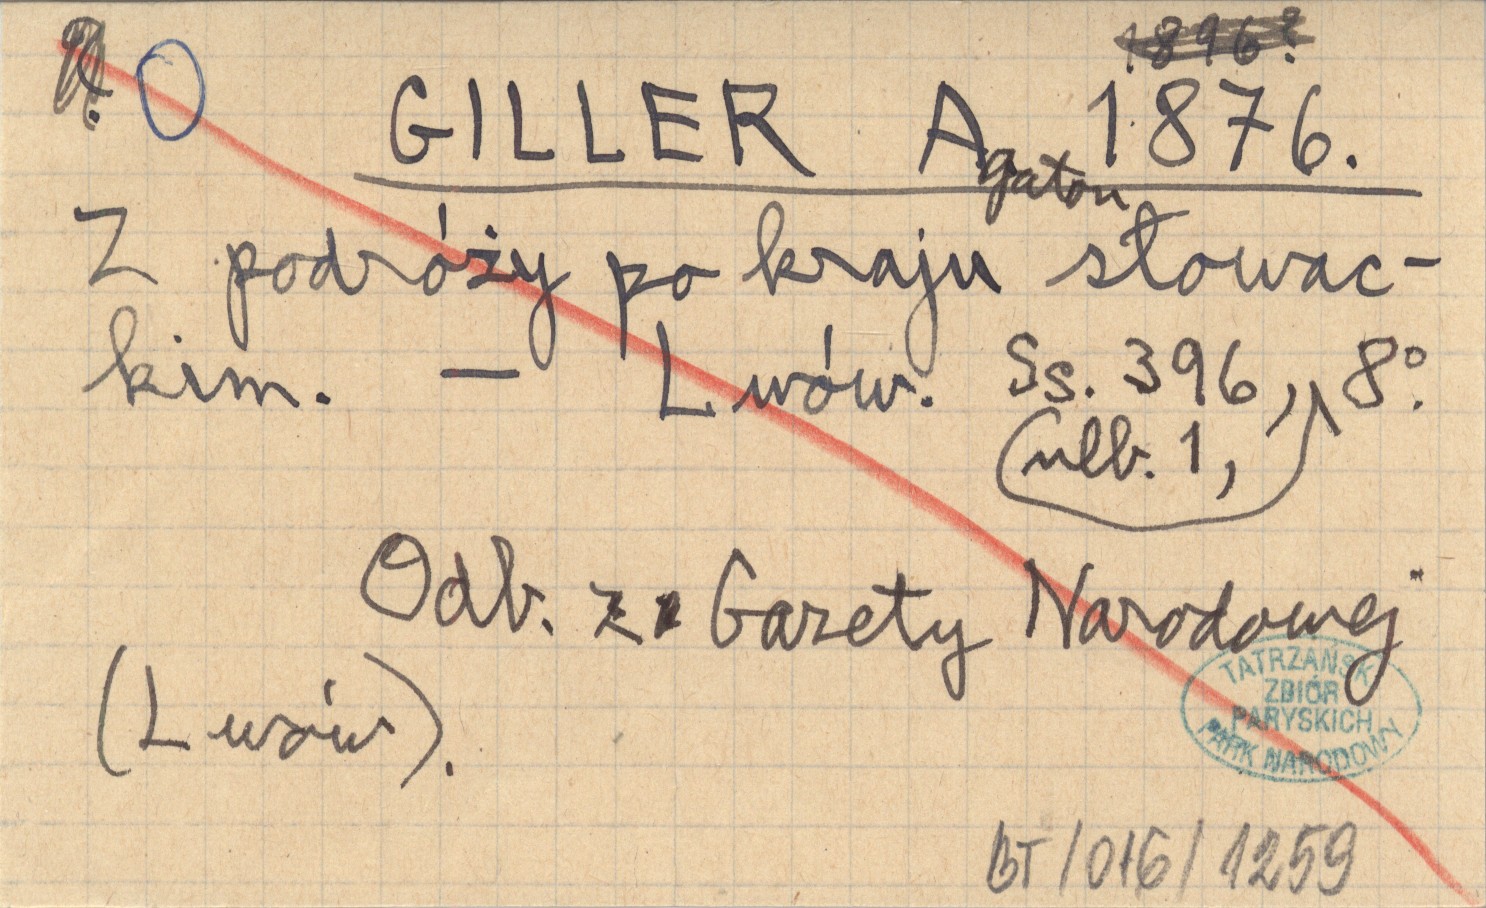 1896?
GILLER Agaton 1876.
Z podróży po kraju słowac-
kim. — Lwów. Ss. 396, 8°.
(nlb. 1,
Odb. z Gazety Narodowej
(Lwów).
TATRZAŃSKI
ZBIÓR
PARYSKICH
PARK NARODOWY
BT/016/1259